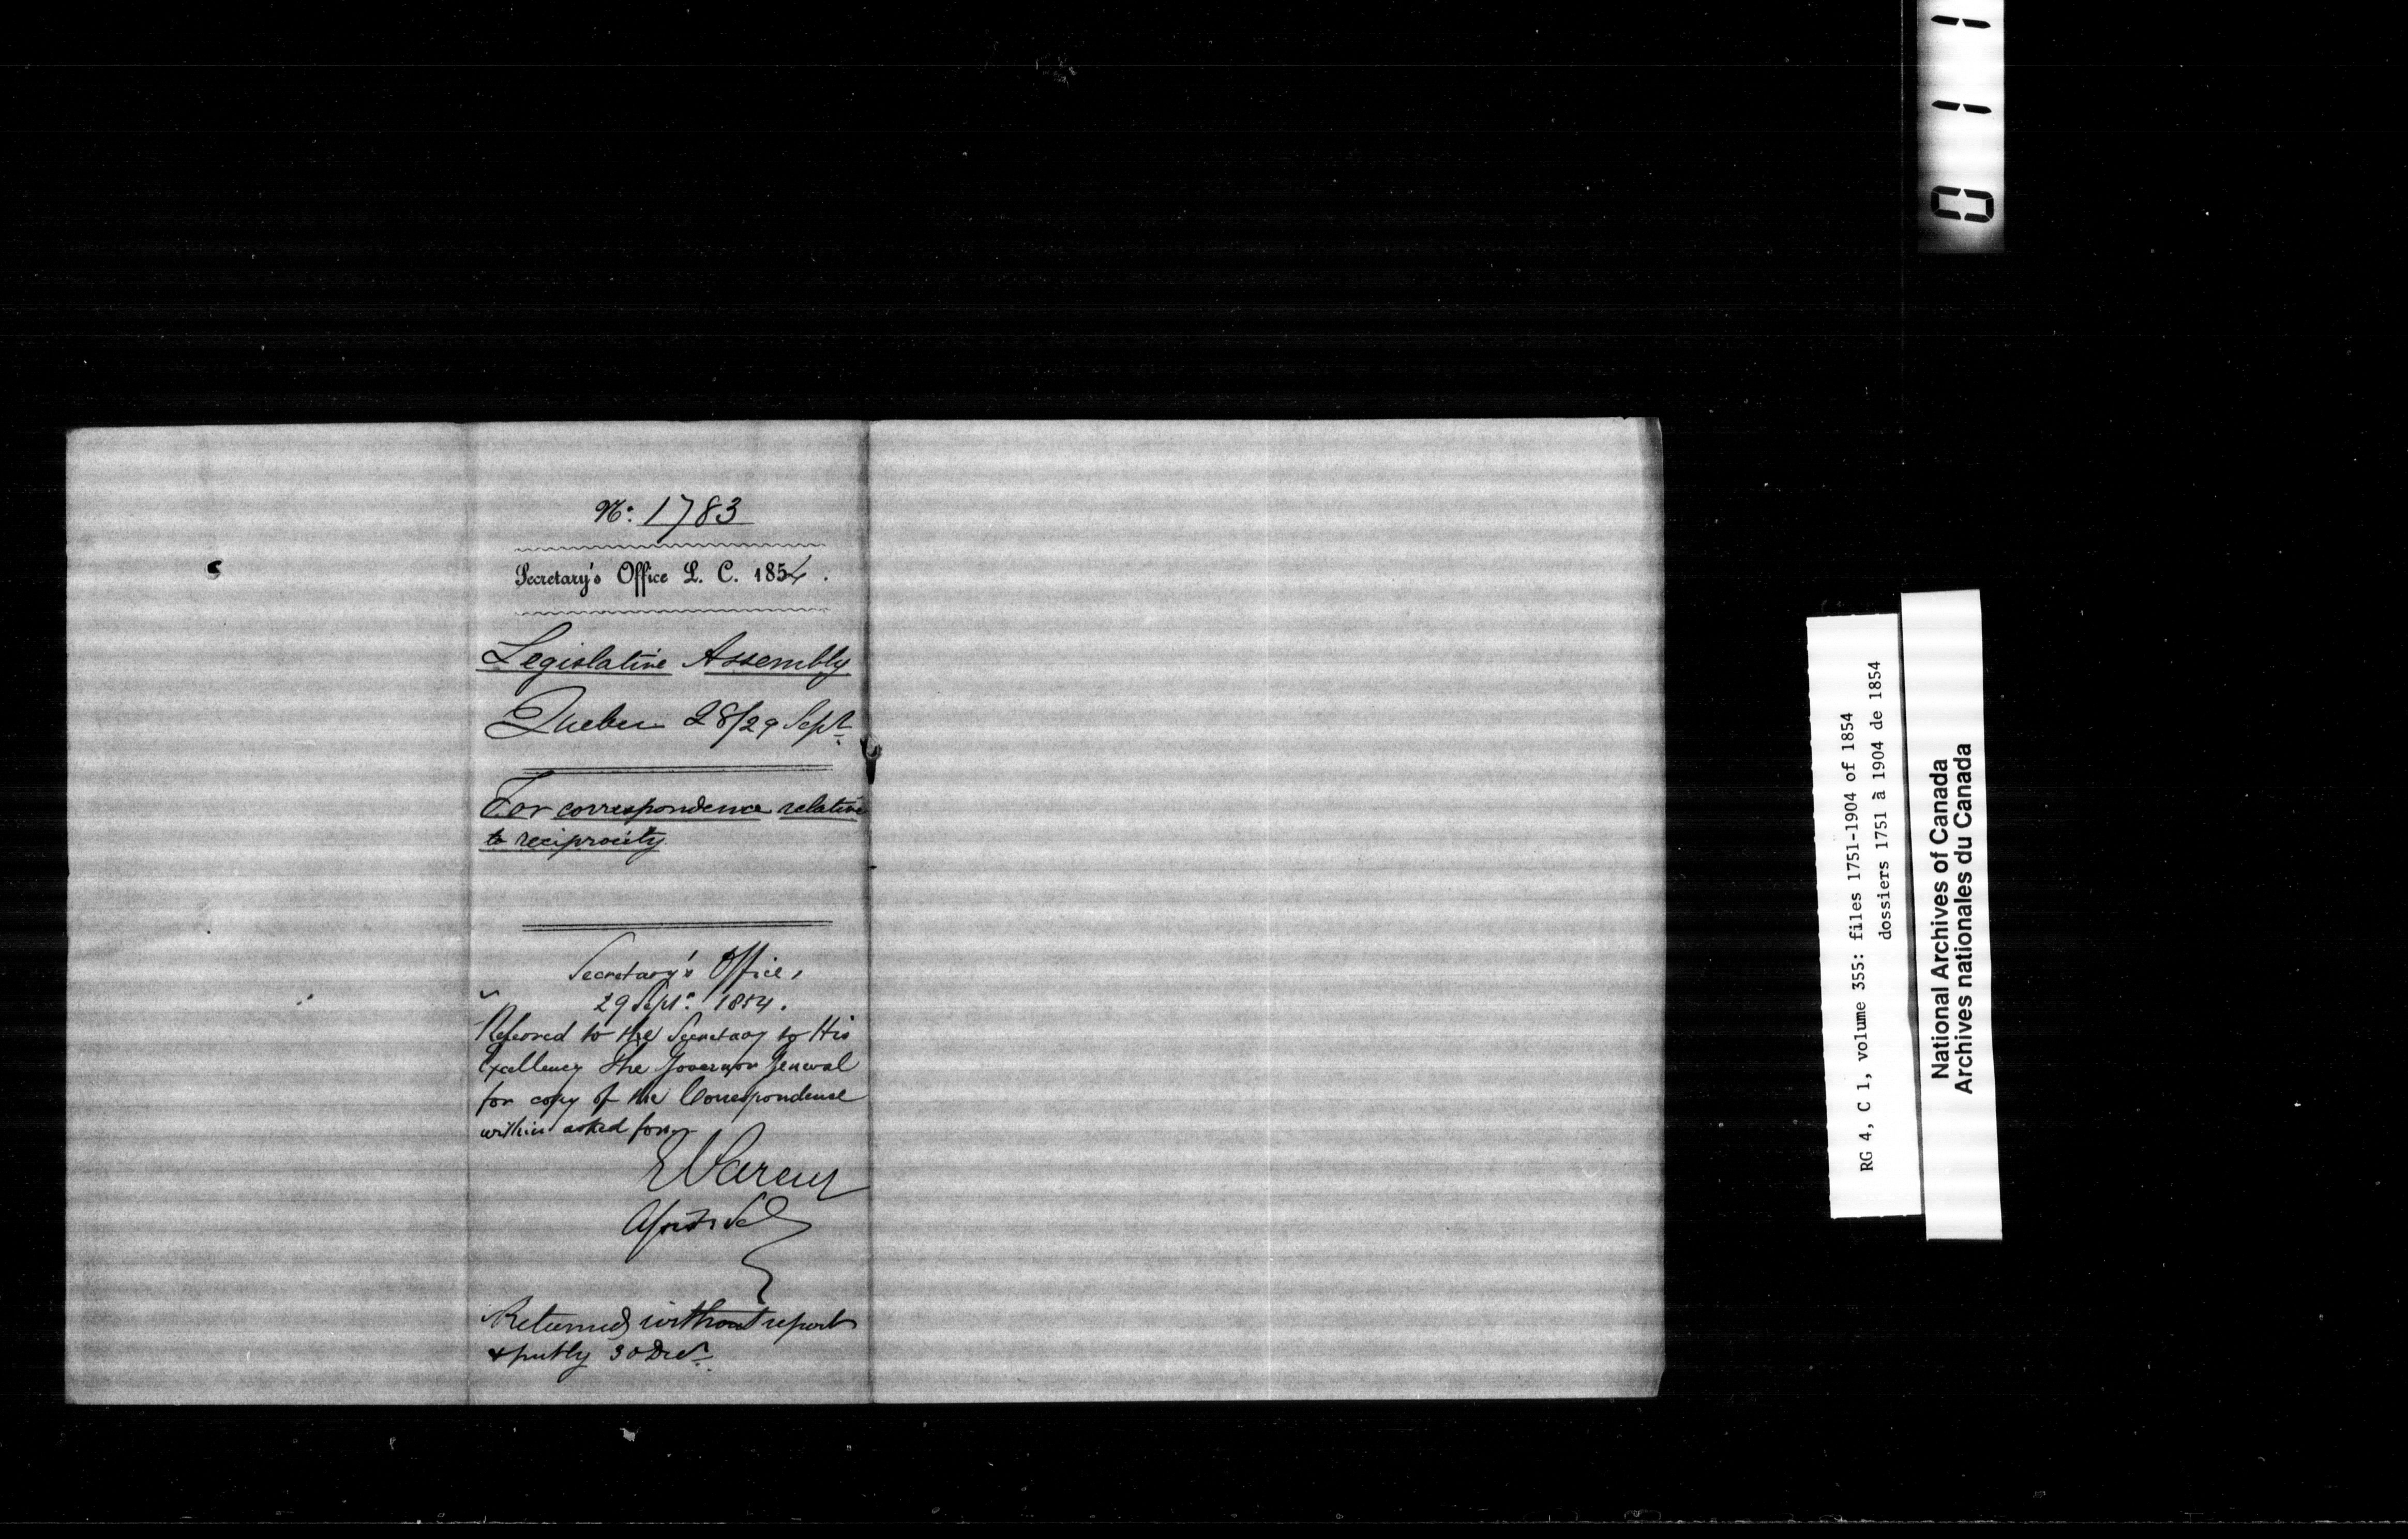 No. 1783
Secretary's Office L. C. 1854.
Legislative Assembly
Quebec 28/29 Sept.
For correspondence relative
to reciprocity
Secretary's Office,
29 Sept. 1854.
Referred to the Secretary to His
Excellency the Governor General
for copy of the Correspondence
within asked for.
E Parent
Asst. Sec
Returned without report
& put by 30 Decr.
0 1 1
RG 4, C 1, volume 355: files 1751-1904 of 1854
dossiers 1751 à 1904 de 1854
National Archives of Canada
Archives nationales du Canada